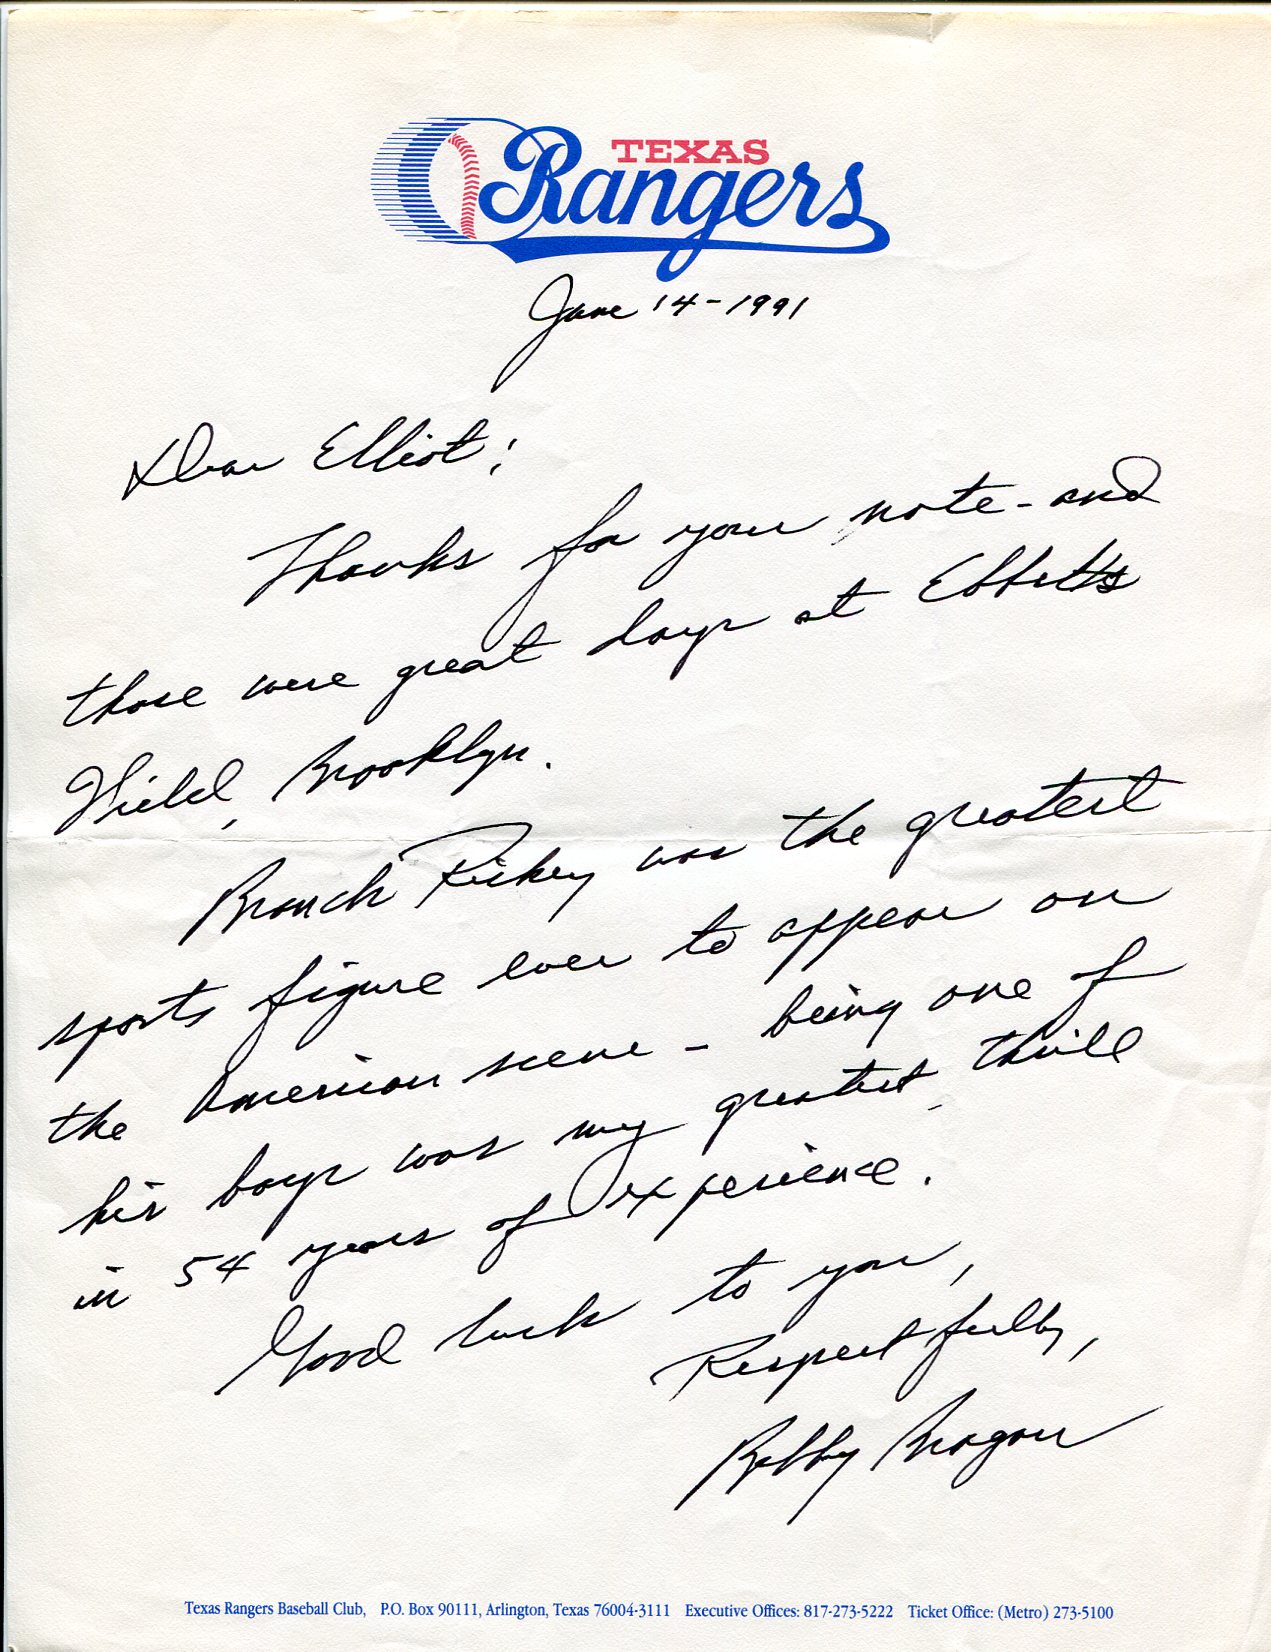 TEXAS
Rangers
June 14-1991
Dear Elliot:
Thanks for your note - and
those were great days at Ebbetts
Field, Brooklyn.
Branch Rickey was the greatest
sports figure ever to appear on
the American scene - being one of
his boys was my greatest thrill
in 54 years of experience.
Good luck to you,
Respectfully,
Bobby Bragan
Texas Rangers Baseball Club, P.O. Box 90111, Arlington, Texas 76004-3111 Executive Offices: 817-273-5222 Ticket Office: (Metro) 273-5100